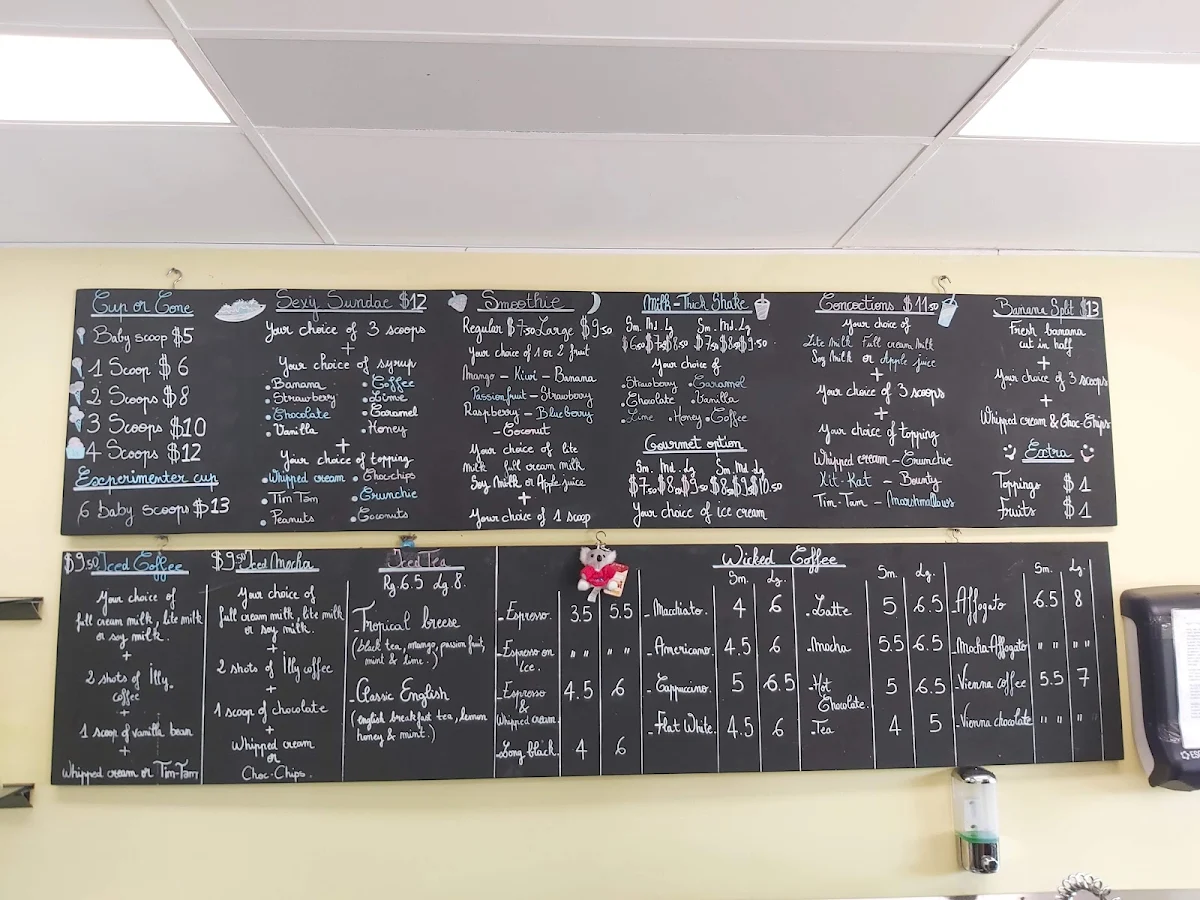 Cup or Cone
Baby scoop $5
1 Scoop $6
2 Scoops $8
3 Scoops $10
4 Scoops $12
Experimenter cup
6 baby scoops $13
Sexy Sundae $12
Your choice of 3 scoops
+
Your choice of syrup
• Banana • Coffee
• Strawberry • Lime
• Chocolate • Caramel
• Vanilla • Honey
+
Your choice of topping
• Whipped cream • Choc-chips
• Tim Tam • Crunchie
• Peanuts • Coconuts
Smoothie
Regular $7.50 Large $9.50
Your choice of 1 or 2 fruit
Mango - Kiwi - Banana
Passionfruit - Strawberry
Raspberry - Blueberry
- Coconut
Your choice of lite
milk, full cream milk
Soy Milk or Apple juice
+
Your choice of 1 scoop
Milk-Thick Shake
Sm. Md. Lg. Sm. Md. Lg.
$6.50 $7.50 $8.50 $7.50 $8.50 $9.50
Your choice of
• Strawberry • Caramel
• Chocolate • Vanilla
• Lime • Honey • Coffee
Gourmet option
Sm. Md. Lg. Sm. Md. Lg.
$7.50 $8.50 $9.50 $8.50 $9.50 $10.50
Your choice of ice cream
Concoctions $11.50
Your choice of
Lite Milk Full cream Milk
Soy Milk or Apple juice
+
Your choice of 3 scoops
+
Your choice of topping
Whipped cream - Crunchie
Kit-Kat - Bounty
Tim-Tam - Marshmallows
Banana Split $13
Fresh banana
cut in half
+
Your choice of 3 scoops
+
Whipped cream & Choc-Chips
Extra
Toppings $1
Fruits $1
$9.50 Iced Coffee
Your choice of
full cream milk, lite milk
or soy milk.
+
2 shots of illy
coffee
+
1 scoop of vanilla bean
+
Whipped cream or Tim-Tam
$9.50 Iced Mocha
Your choice of
full cream milk, lite milk
or soy milk.
+
2 shots of illy coffee
+
1 scoop of chocolate
+
Whipped cream
or
Choc-Chips.
Iced Tea
Rg. 6.5 Lg. 8.
- Tropical breese
(black tea, mango, passion fruit,
mint & lime.)
- Classic English
(english breakfast tea, lemon
honey & mint.)
Wicked Coffee
- Espresso. 3.5 5.5
- Espresso on
Ice. " " " "
- Espresso 4.5 6
&
Whipped cream.
- Long black. 4 6
Sm. Lg.
- Macchiato. 4 6
- Americano. 4.5 6
- Cappuccino. 5 6.5
- Flat White. 4.5 6
Sm. Lg.
- Latte 5 6.5
- Mocha 5.5 6.5
- Hot
Chocolate. 5 6.5
- Tea 4 5
Sm. Lg.
- Affogato 6.5 8
- Mocha Affogato " " " "
- Vienna coffee 5.5 7
- Vienna chocolate " " " "